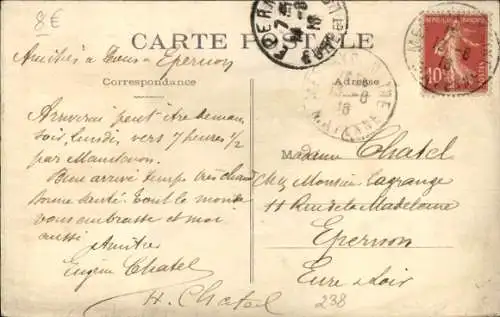 8€
Amitiés à tous à Epernon
CARTE POSTALE
Correspondance
Adresse
Arriverai peut être demain
soir, lundi, vers 7 heures 1/2
par Maintenon.
Bien arrivé temps très chaud
bonne santé. Tout le monde
vous embrasse et moi
aussi
Amitiés
Eugène Chatel
H. Chatel
Madame Chatel
Chez Monsieur Lagrange
11 Rue de la Madeleine
Epernon
Eure & Loir
238
10
MAYENNE